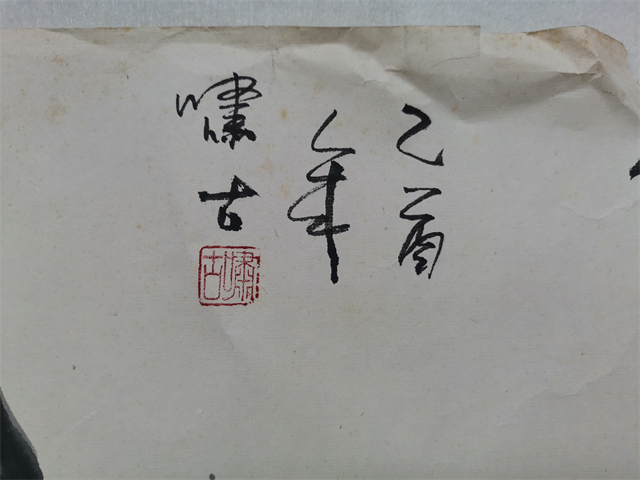 乙酉
年
嘯古
嘯古